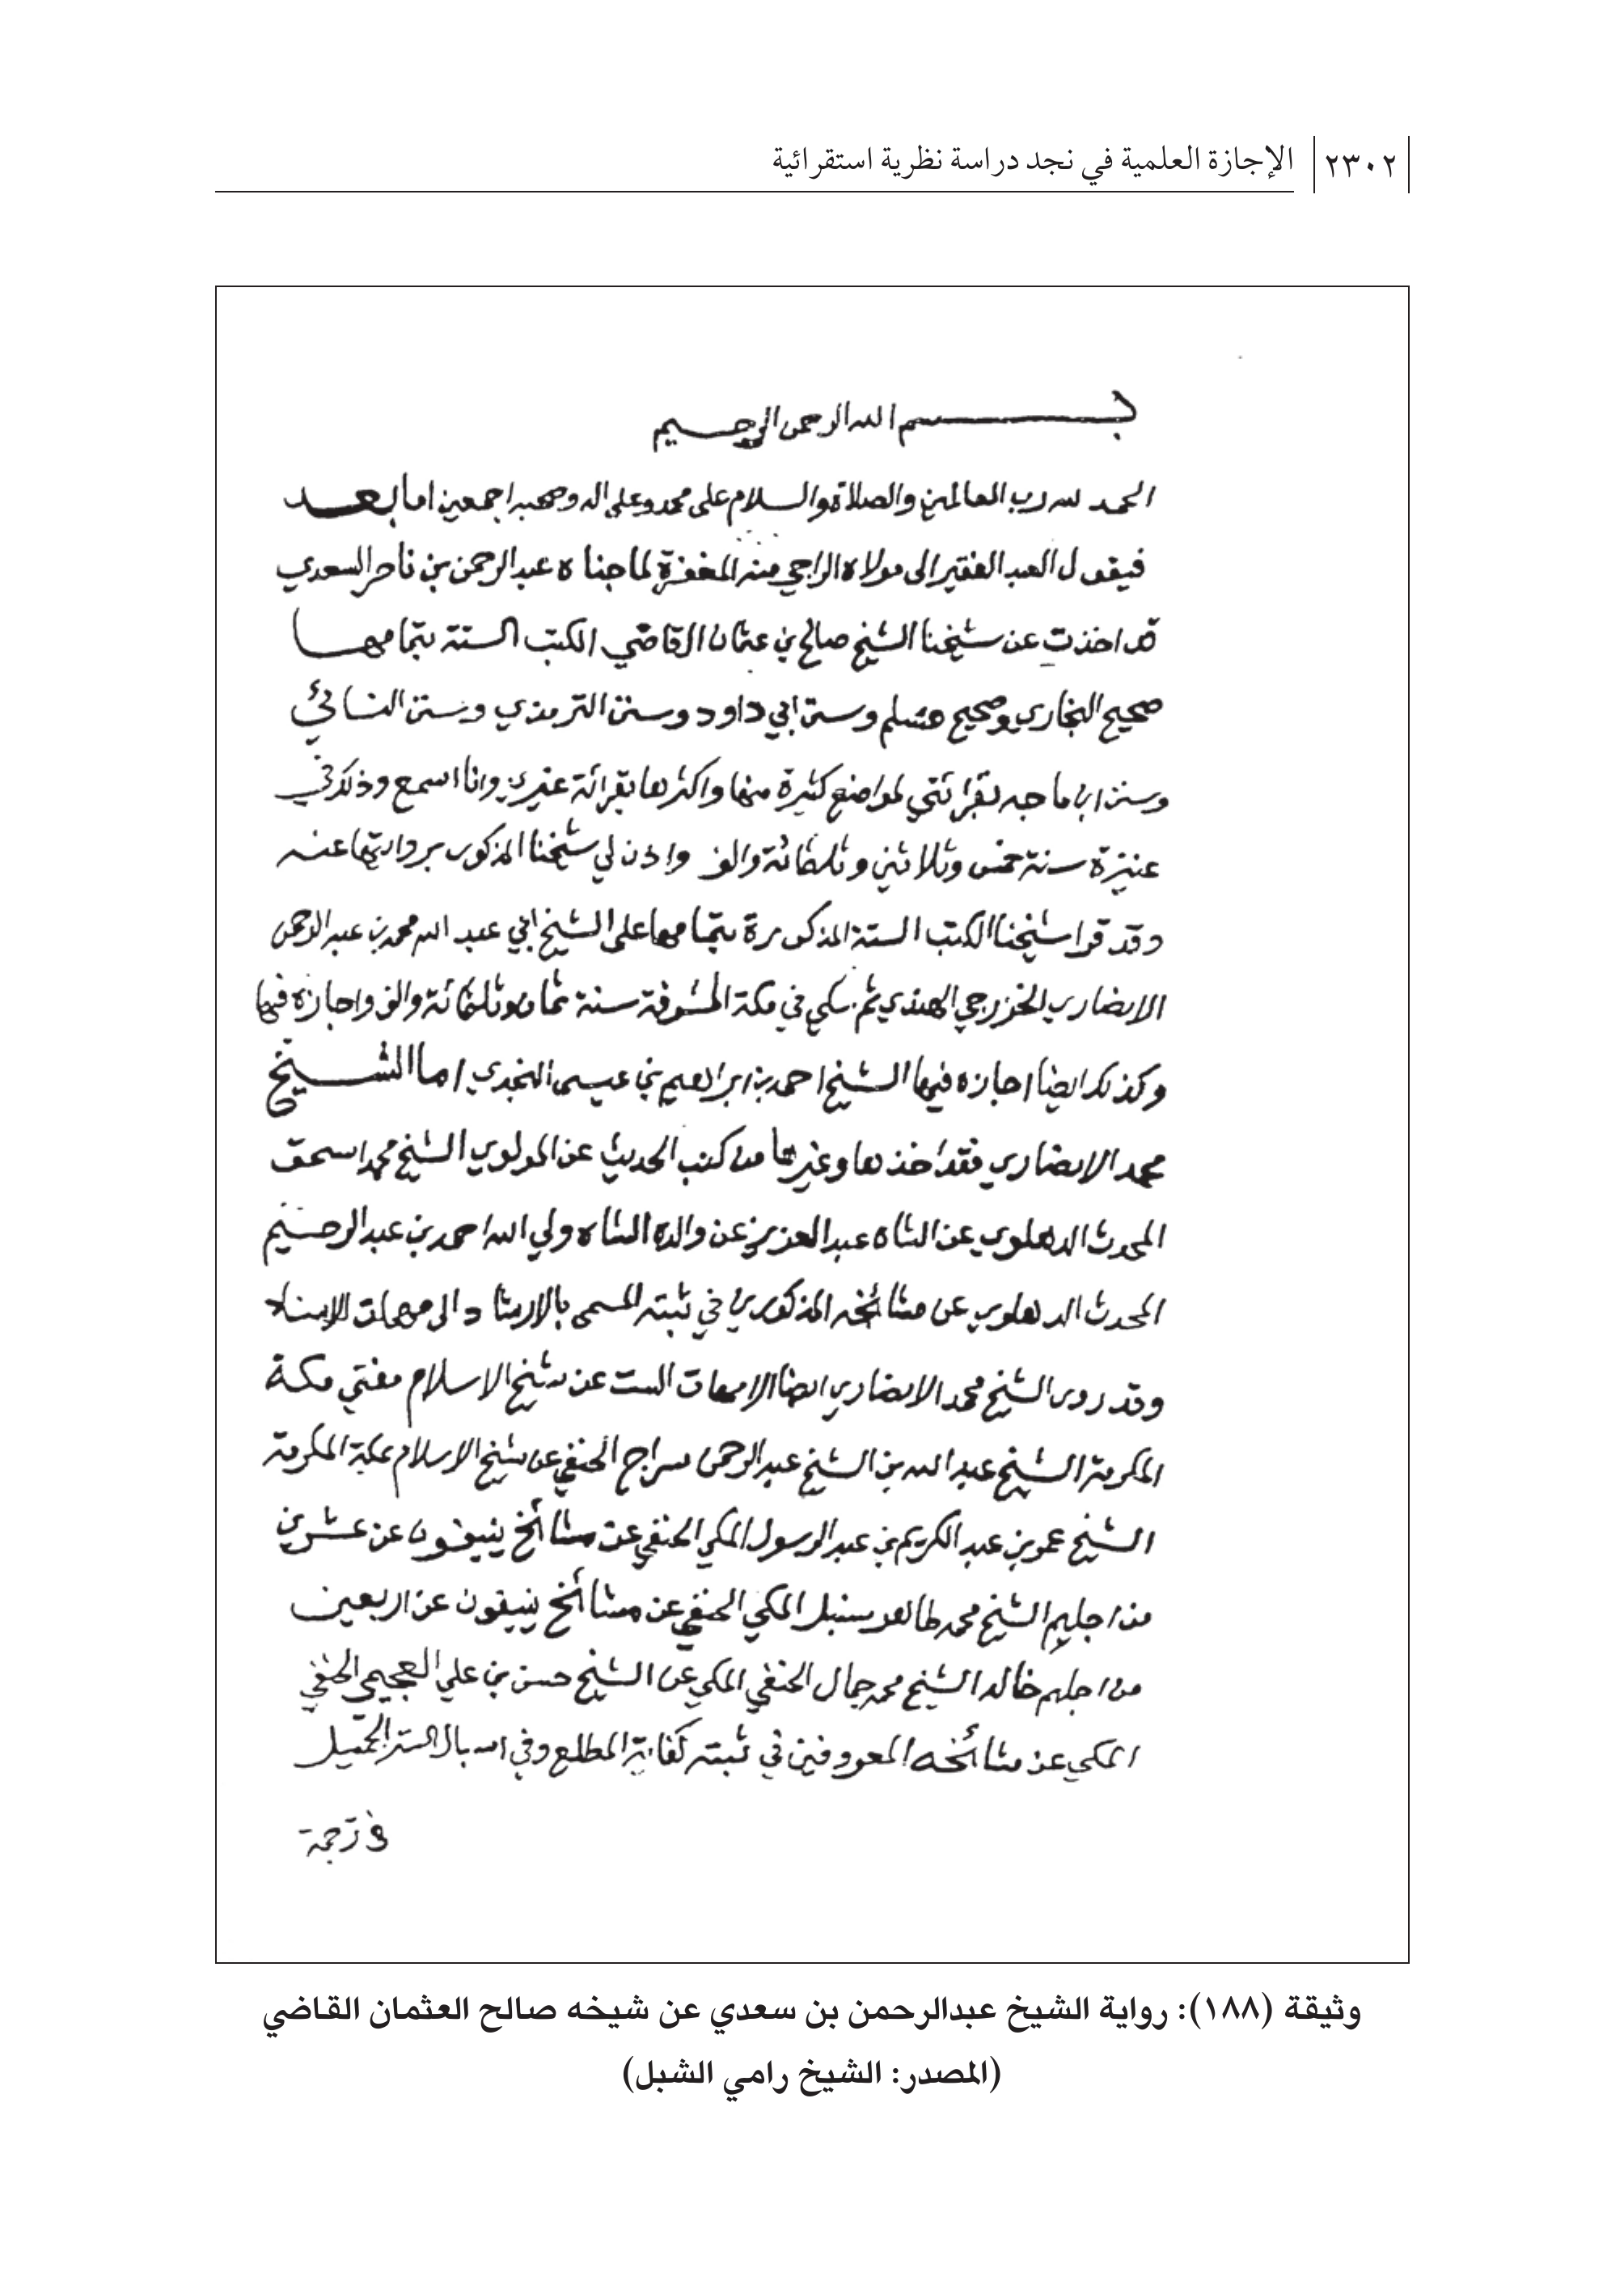 ٢٣٠٢ الإجازة العلمية في نجد دراسة نظرية استقرائية
بسم الله الرحمن الرحيم
الحمد لله رب العالمين والصلاة والسلام على محمد وعلى اله وصحبه اجمعين اما بعد
فيقول العبد الفقير الى مولاه الراجي منه المغفرة لما جناه عبد الرحمن بن ناصر السعدي
قد اخذت عن شيخنا الشيخ صالح بن عثمان القاضي الكتب الستة بتمامها
صحيح البخاري وصحيح مسلم وسنن ابي داود وسنن الترمذي وسنن النسائي
وسنن ابن ماجه بقرائتي لمواضع كثيرة منها واكثرها بقرائة غيري وانا اسمع وذلك في
عنيزة سنة خمس وثلاثين وثلثمائة والف واذن لي شيخنا المذكور بروايتها عنه
وقد قرا شيخنا الكتب الستة المذكورة بتمامها على الشيخ ابي عبد الله محمد بن عبد الرحمن
الانصاري الخزرجي الهندي ثم المكي في مكة المشرفة سنة ثمان وثلثمائة والف واجازه فيها
وكذلك ايضا اجازه فيها الشيخ احمد بن ابراهيم بن عيسى النجدي اما الشيخ
محمد الانصاري فقد اخذها وغيرها من كتب الحديث عن المولوي الشيخ محمد اسحق
المحدث الدهلوي عن الشاه عبد العزيز عن والده الشاه ولي الله احمد بن عبد الرحيم
المحدث الدهلوي عن مشائخه المذكورين في ثبته المسمى بالارشاد الى مهمات الاسناد
وقد روى الشيخ محمد الانصاري ايضا الامهات الست عن شيخ الاسلام مفتي مكة
المكرمة الشيخ عبد الله بن الشيخ عبد الرحمن سراج الحنفي عن شيخ الاسلام بمكة المكرمة
الشيخ عمر بن عبد الكريم بن عبد الرسول المكي الحنفي عن مشائخ ينيفون عن عشرين
من اجلهم الشيخ محمد طاهر سنبل المكي الحنفي عن مشائخ ينيفون عن اربعين
من اجلهم خاله الشيخ محمد جمال الحنفي المكي عن الشيخ حسن بن علي العجيمي الحنفي
المكي عن مشائخه المعروفين في ثبته كفاية المطلع وفي اسبال الستر الجميل
في ترجمة
وثيقة (١٨٨): رواية الشيخ عبدالرحمن بن سعدي عن شيخه صالح العثمان القاضي
(المصدر: الشيخ رامي الشبل)